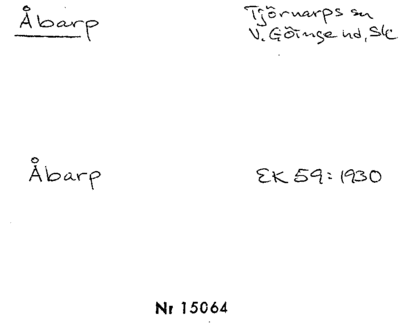 Åbarp
Tjörnarps sn
V. Göinge hd, Sk
Åbarp
EK 59: 1930
Nr 15064